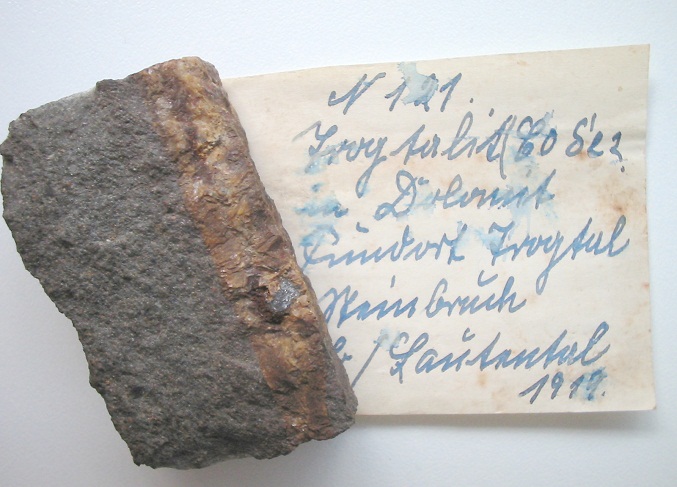 N 121.
Trogtalit (Co Se2
in Dolomit
Fundort Trogtal
Steinbruch
b/ Lautental
1919.